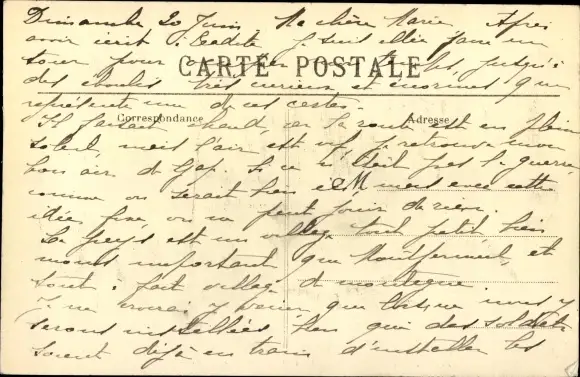 Dimanche 20 Juin Ma chère Marie Après
avoir écrit à je suis allée faire un
tour pour jusqu'à
CARTE POSTALE
des éboulis très curieux et énormes que
représente une de ces cartes.
Correspondance
Adresse
Il faisait chaud, car la route est en plein
soleil, mais l'air est vif, je retrouve mon
bon air de Gap. Si ce n'était pas la guerre
comme on serait bien ici M mais avec cette
idée fixe on ne peut jouir de rien.
Le pays est un village tout petit bien
moins important que Montferment, et
tout à fait village de montagne.
Je ne croirai y voir que lorsque nous y
serons installées bien que des soldats
soient déjà en train d'installer les